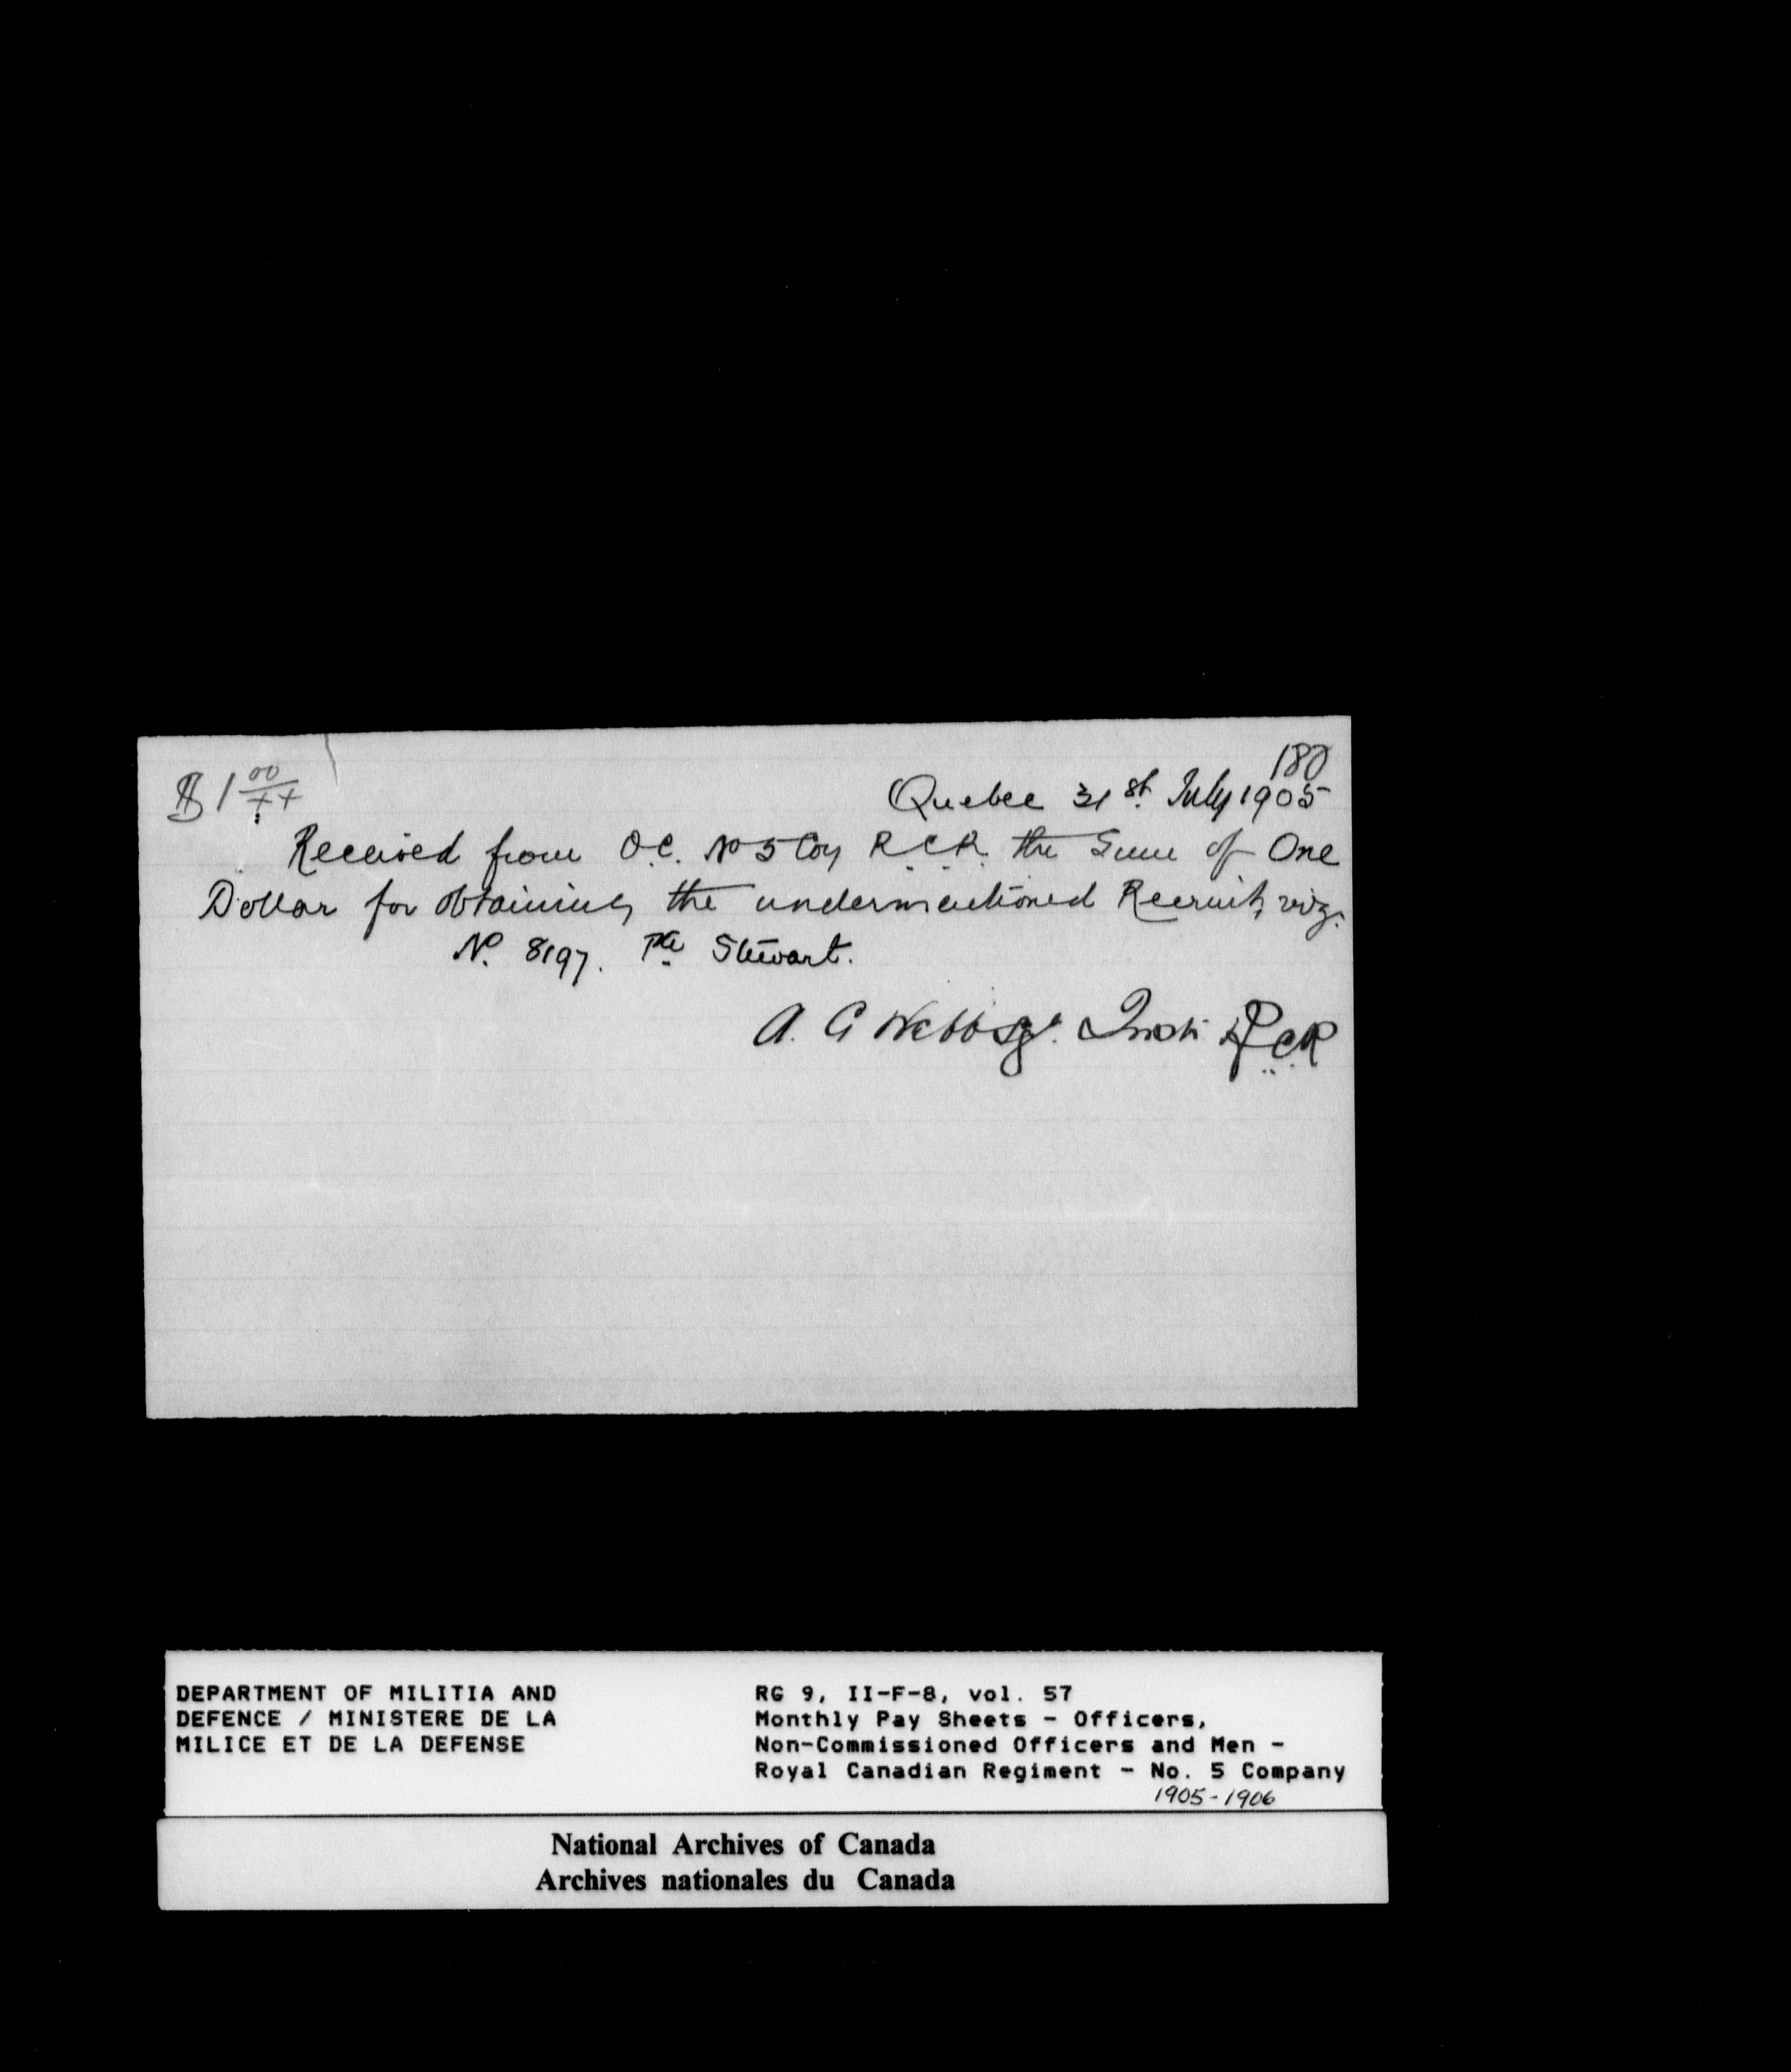 180
$1 00/xx
Quebec 31st July 1905
Received from O.C. No 5 Coy R.C.R. the Sum of One
Dollar for obtaining the undermentioned Recruit, viz:
No. 8197. Pte Stewart.
A. G Webb Sgt. R.C.R
DEPARTMENT OF MILITIA AND
DEFENCE / MINISTERE DE LA
MILICE ET DE LA DEFENSE
RG 9, II-F-8, vol. 57
Monthly Pay Sheets - Officers,
Non-Commissioned Officers and Men -
Royal Canadian Regiment - No. 5 Company
1905-1906
National Archives of Canada
Archives nationales du Canada